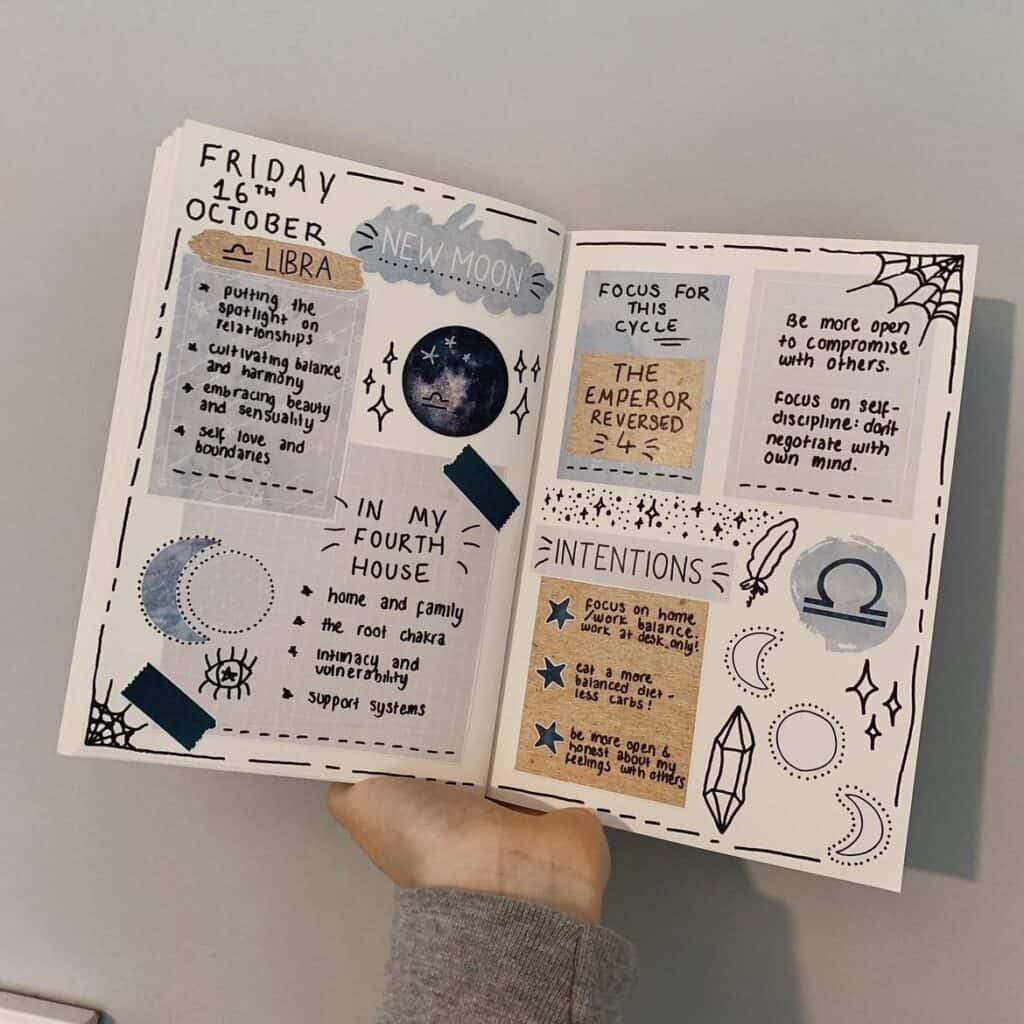 FRIDAY
16TH
OCTOBER
♎ LIBRA
NEW MOON
putting the
spotlight on
relationships
cultivating balance
and harmony
embracing beauty
and sensuality
self love and
boundaries
IN MY
FOURTH
HOUSE
home and family
the root chakra
intimacy and
vulnerability
support systems
FOCUS FOR
THIS
CYCLE
THE
EMPEROR
REVERSED
4
Be more open
to compromise
with others.
Focus on self-
discipline: don't
negotiate with
own mind.
INTENTIONS
focus on home
/work balance.
work at desk only!
eat a more
balanced diet -
less carbs!
be more open &
honest about my
feelings with others